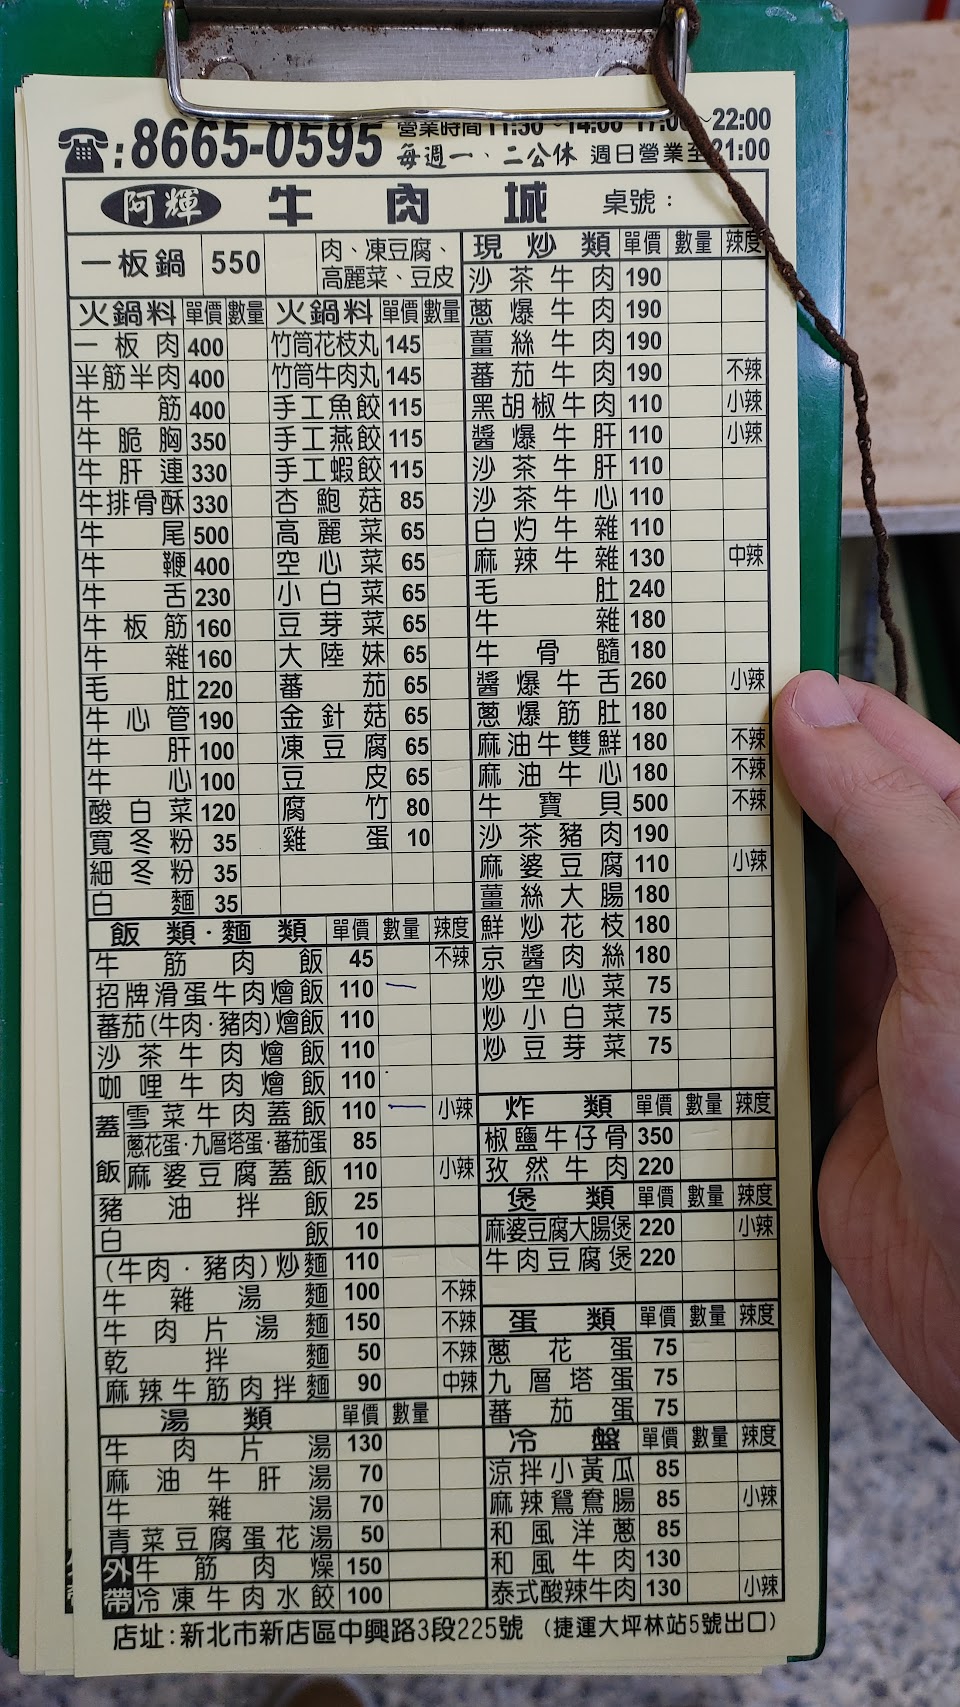 ☎:8665-0595
營業時間11:30~14:00 17:00~22:00
每週一、二公休 週日營業至21:00
阿輝 牛肉城 桌號:
一板鍋 550 肉、凍豆腐、高麗菜、豆皮
火鍋料 單價 數量
一板肉 400
半筋半肉 400
牛筋 400
牛脆胸 350
牛肝連 330
牛排骨酥 330
牛尾 500
牛鞭 400
牛舌 230
牛板筋 160
牛雜 160
毛肚 220
牛心管 190
牛肝 100
牛心 100
酸白菜 120
寬冬粉 35
細冬粉 35
白麵 35
火鍋料 單價 數量
竹筒花枝丸 145
竹筒牛肉丸 145
手工魚餃 115
手工燕餃 115
手工蝦餃 115
杏鮑菇 85
高麗菜 65
空心菜 65
小白菜 65
豆芽菜 65
大陸妹 65
蕃茄 65
金針菇 65
凍豆腐 65
豆皮 65
腐竹 80
雞蛋 10
飯類·麵類 單價 數量 辣度
牛筋肉飯 45 不辣
招牌滑蛋牛肉燴飯 110 一
蕃茄(牛肉·豬肉)燴飯 110
沙茶牛肉燴飯 110
咖哩牛肉燴飯 110
蓋飯
雪菜牛肉蓋飯 110 一 小辣
蔥花蛋·九層塔蛋·蕃茄蛋 85
麻婆豆腐蓋飯 110 小辣
豬油拌飯 25
白飯 10
(牛肉·豬肉)炒麵 110
牛雜湯麵 100 不辣
牛肉片湯麵 150 不辣
乾拌麵 50 不辣
麻辣牛筋肉拌麵 90 中辣
湯類 單價 數量
牛肉片湯 130
麻油牛肝湯 70
牛雜湯 70
青菜豆腐蛋花湯 50
外帶
牛筋肉燥 150
冷凍牛肉水餃 100
現炒類 單價 數量 辣度
沙茶牛肉 190
蔥爆牛肉 190
薑絲牛肉 190
蕃茄牛肉 190 不辣
黑胡椒牛肉 110 小辣
醬爆牛肝 110 小辣
沙茶牛肝 110
沙茶牛心 110
白灼牛雜 110
麻辣牛雜 130 中辣
毛肚 240
牛雜 180
牛骨髓 180
醬爆牛舌 260 小辣
蔥爆筋肚 180
麻油牛雙鮮 180 不辣
麻油牛心 180 不辣
牛寶貝 500 不辣
沙茶豬肉 190
麻婆豆腐 110 小辣
薑絲大腸 180
鮮炒花枝 180
京醬肉絲 180
炒空心菜 75
炒小白菜 75
炒豆芽菜 75
炸類 單價 數量 辣度
椒鹽牛仔骨 350
孜然牛肉 220
煲類 單價 數量 辣度
麻婆豆腐大腸煲 220 小辣
牛肉豆腐煲 220
蛋類 單價 數量 辣度
蔥花蛋 75
九層塔蛋 75
蕃茄蛋 75
冷盤 單價 數量 辣度
涼拌小黃瓜 85
麻辣鴛鴦腸 85 小辣
和風洋蔥 85
和風牛肉 130
泰式酸辣牛肉 130 小辣
店址:新北市新店區中興路3段225號 (捷運大坪林站5號出口)